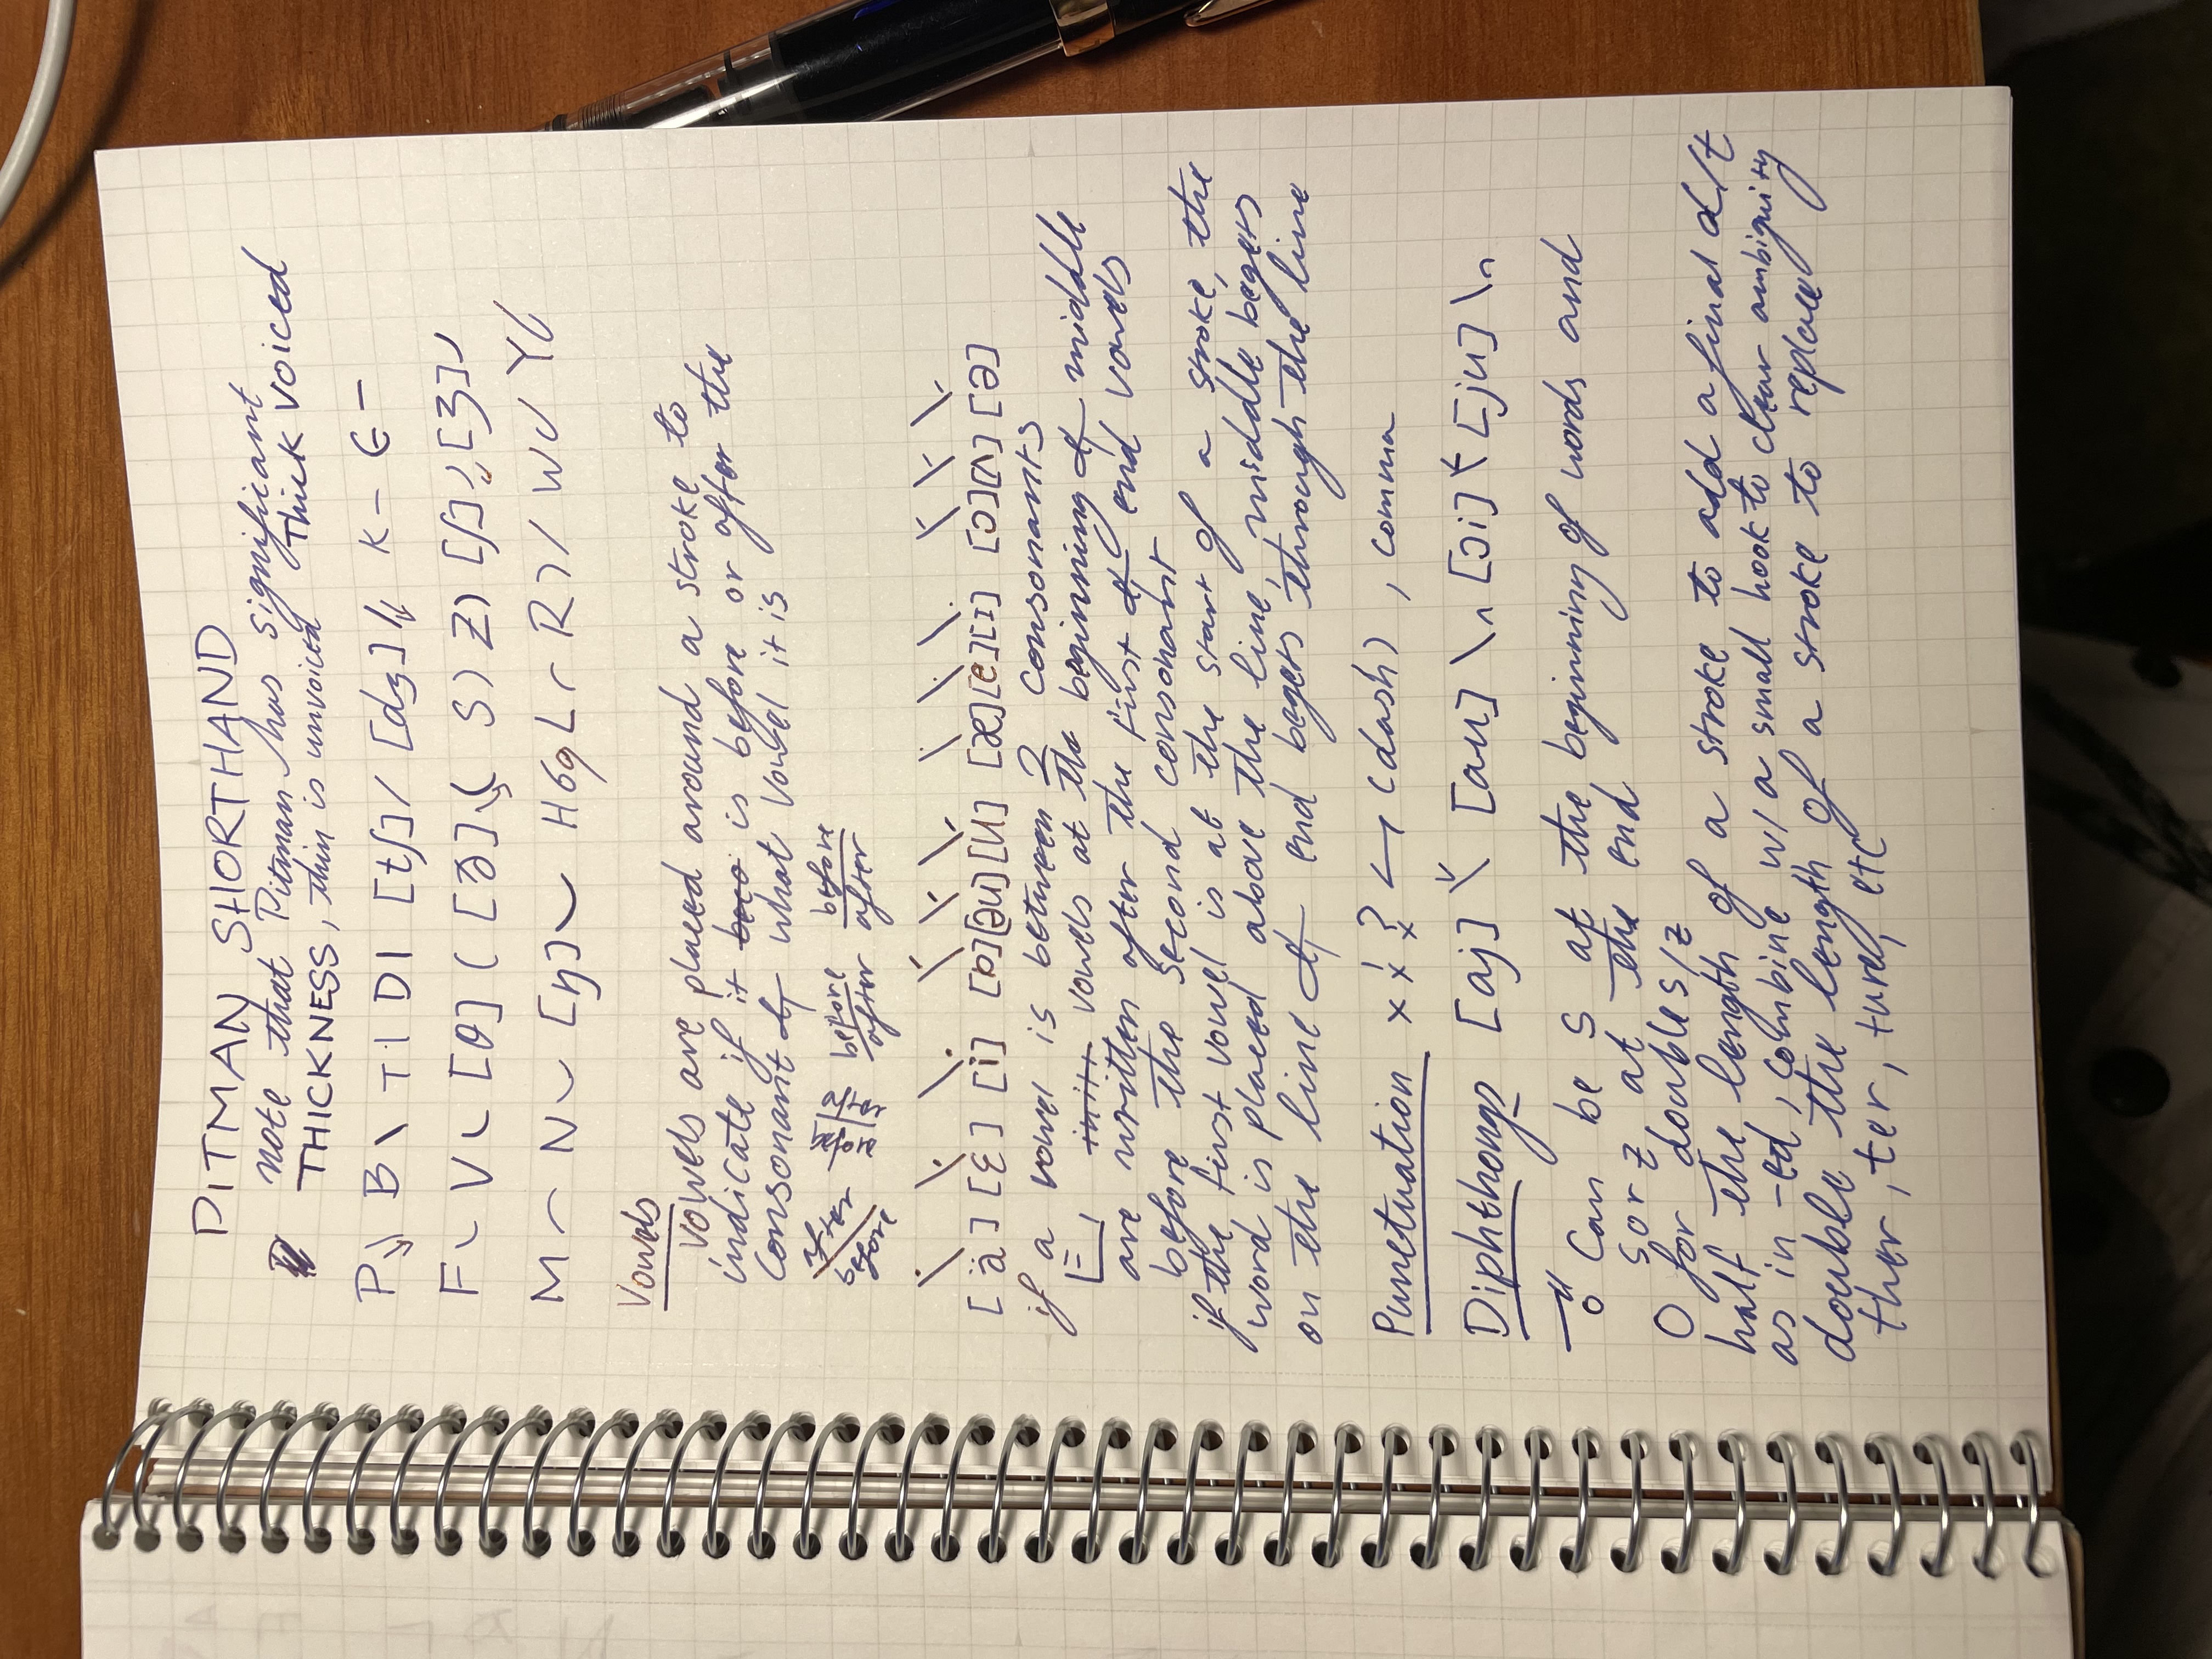 PITMAN SHORTHAND
note that Pitman has significant
THICKNESS, thin is unvoiced Thick voiced
P \ B \ T | D | [tʃ] / [dʒ] / K – G –
F V [θ] ( [ð] ( S ) Z ) [ʃ] [ʒ]
M N [ŋ] H L R ) / W Y
Vowels
vowels are placed around a stroke to
indicate if it is before or after the
consonant & what vowel it is
after before before after before after before after
[ä] [ɛ] [i] [ɒ] [əu] [u] [æ] [e] [ɪ] [ɔ] [ʌ] [ə]
if a vowel is between 2 consonants
vowels at the beginning & middle
are written after the first & end vowels
before the second consonant
if the first vowel is at the start of a stroke, the
word is placed above the line, middle begets
on the line & end begets through the line
Punctuation x ! ? (dash) , comma
Diphthongs [aj] [au] [ɔi] [ju]
o can be S at the beginning of words and
S or Z at the end
O for double s/z
half the length of a stroke to add a final d/t
as in -ed, combine w/ a small hook to clear ambiguity
double the length of a stroke to replace
ther, ter, ture, etc